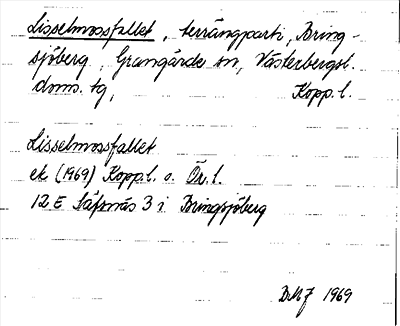 Lisselmossfallet, terrängparti, Bring-
sjöberg, Grangärde sn, Västerbergsl.
doms. tg, Kopp. l.
Lisselmossfallet
ek (1969) Kopp. l. o. Ör. l.
12 E Säfsnäs 3 i Bringsjöberg
DMJ 1969